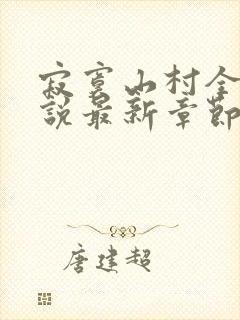 寂寞山村全
說最新章節
唐建超